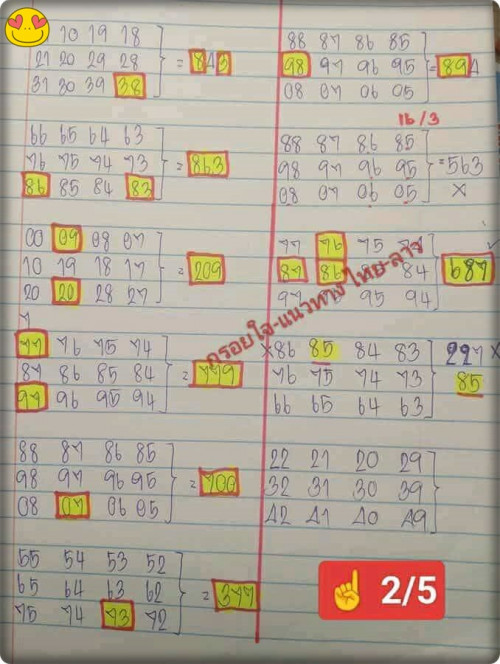 10 19 18
21 20 29 28
31 30 39 38
= 843
66 65 64 63
76 75 74 73
86 85 84 83
= 863
00 09 08 07
10 19 18 17
20 20 28 27
= 209
7
77 76 75 74
87 86 85 84
97 96 95 94
= 779
88 87 86 85
98 97 96 95
08 07 06 05
= 700
55 54 53 52
65 64 63 62
75 74 73 72
= 377
88 87 86 85
98 97 96 95
08 07 06 05
= 894
16/3
88 87 86 85
98 97 96 95
08 07 06 05
= 563
×
77 76 75
87 86 84
97 95 94
687
กรอยใจ-แนวทาง ไทย-ลาว
×86 85 84 83
76 75 74 73
66 65 64 63
227 ×
85
22 21 20 29
32 31 30 39
42 41 40 49
2/5